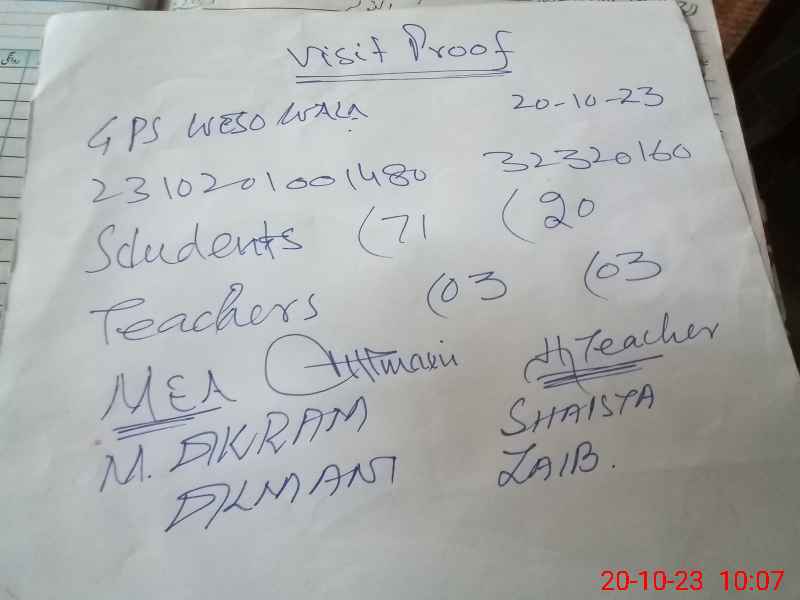 Visit Proof
GPS WESO WALA 20-10-23
2310201001480 32320160
Students (71 (20
Teachers (03 (03
MEA H/Teacher
M. IKRAM SHAISTA
ZAIB.
20-10-23 10:07